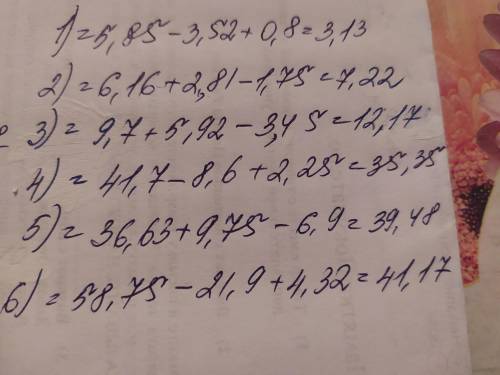 1) = 5,85 - 3,52 + 0,8 = 3,13
2) = 6,16 + 2,81 - 1,75 = 7,22
3) = 9,7 + 5,92 - 3,45 = 12,17
4) = 41,7 - 8,6 + 2,25 = 35,35
5) = 36,63 + 9,75 - 6,9 = 39,48
6) = 58,75 - 21,9 + 4,32 = 41,17